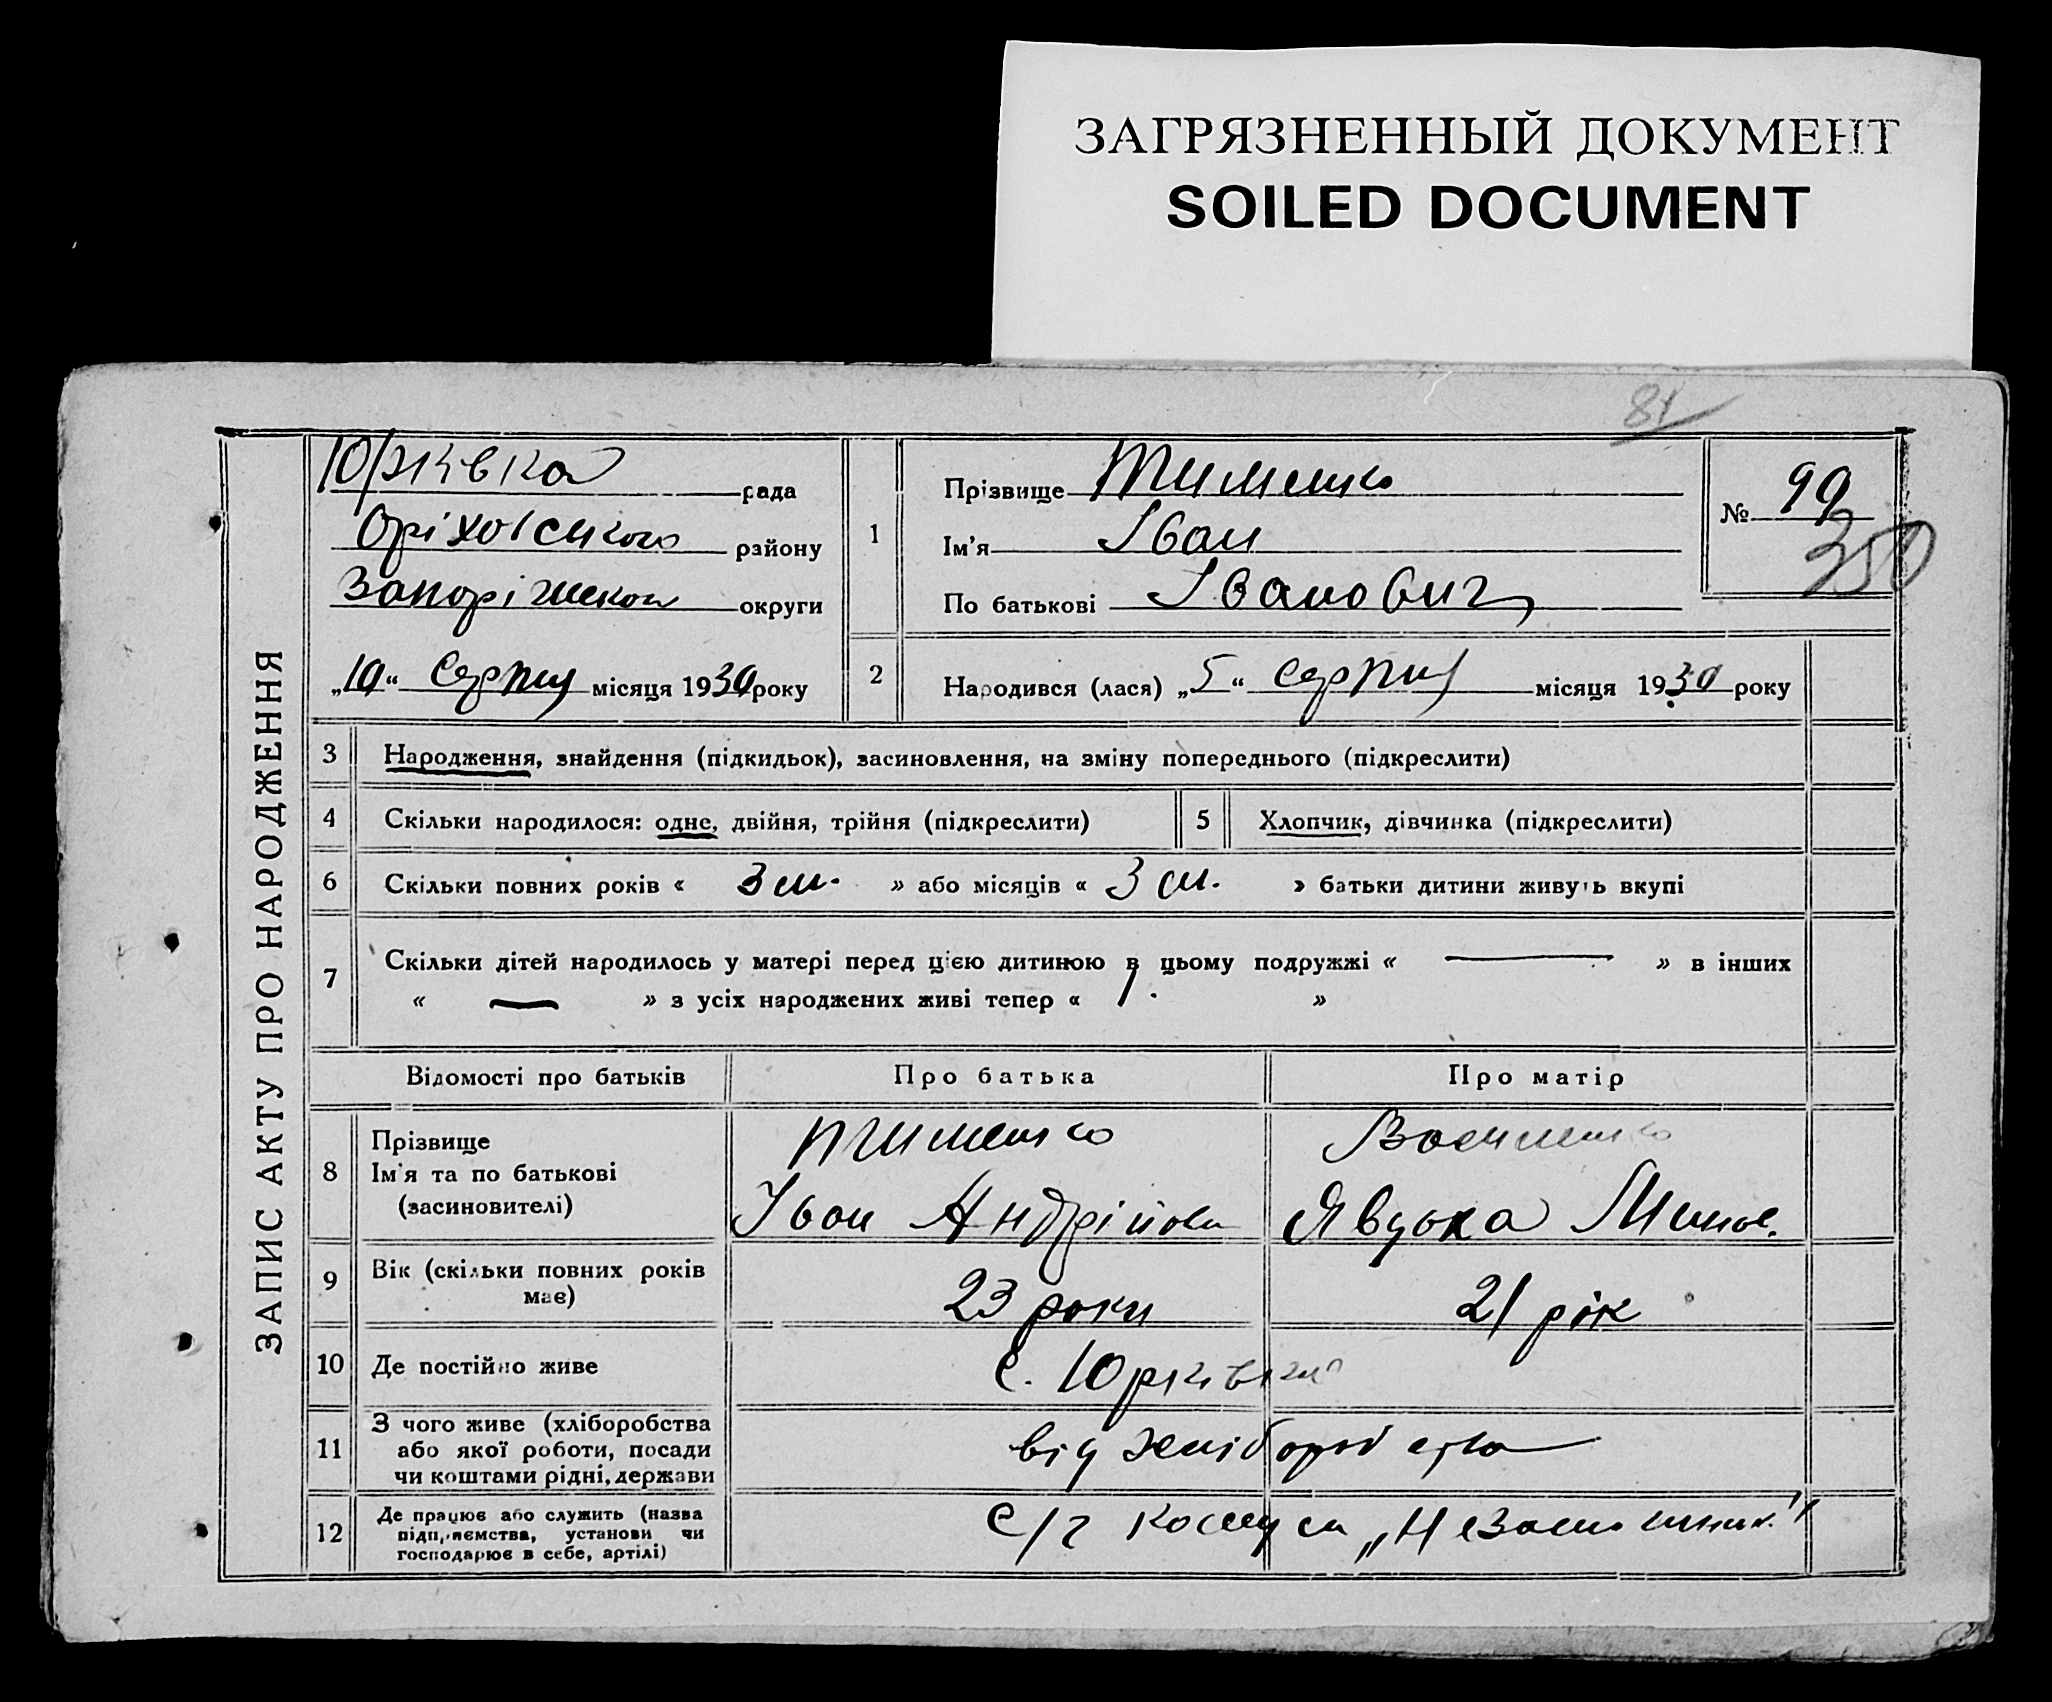 ЗАГРЯЗНЕННЫЙ ДОКУМЕНТ
SOILED DOCUMENT
81
ЗАПИС АКТУ ПРО НАРОДЖЕННЯ
Юрківка рада
Оріховського району
Запоріжской округи
„10“ Серпня місяця 1930 року
1
Прізвище Тименко
Ім'я Іван
По батькові Іванович
№ 99
350
2 Народився (лася) „5“ Серпня місяця 1930 року
3 Народження, знайдення (підкидьок), засиновлення, на зміну попереднього (підкреслити)
4 Скільки народилося: одне, двійня, трійня (підкреслити) 5 Хлопчик, дівчинка (підкреслити)
6 Скільки повних років « 3 м. » або місяців « 3 м. » батьки дитини живуть вкупі
7 Скільки дітей народилось у матері перед цією дитиною в цьому подружжі « — » в інших
« — » з усіх народжених живі тепер « 1. »
Відомості про батьків Про батька Про матір
8 Прізвище
Ім'я та по батькові
(засиновителі)
Тименко
Іван Андрійов
Василенко
Явдоха Минов.
9 Вік (скільки повних років
має)
23 роки 21 рік
10 Де постійно живе с. Юрківка
11 З чого живе (хліборобства
або якої роботи, посади
чи коштами рідні, держави
від хліборобства
12 Де працює або служить (назва
підприємства, установи чи
господарює в себе, артілі)
С/г комуна „Незаможник"